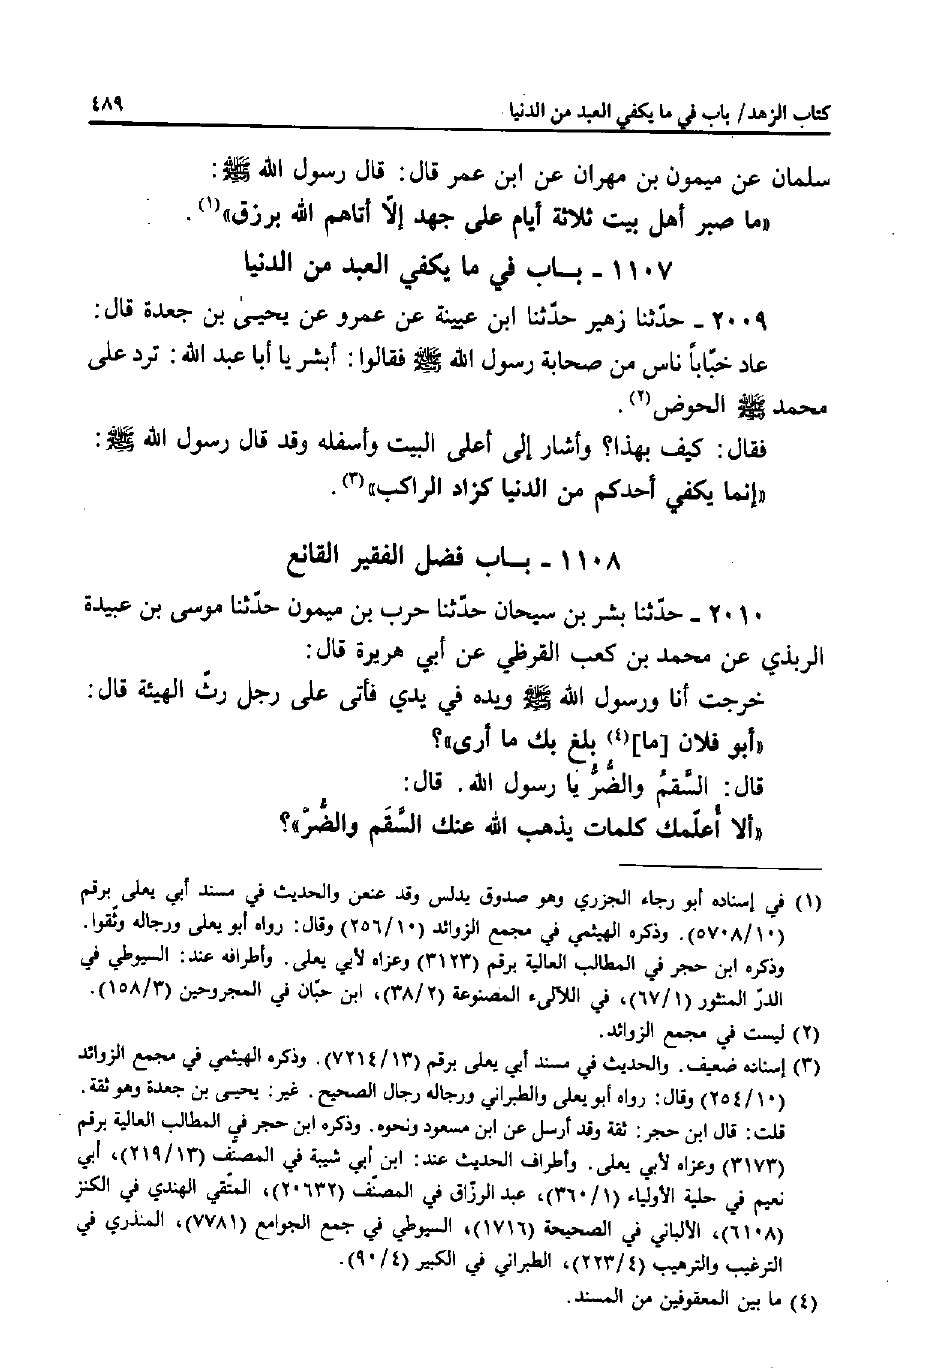 كتاب الزهد/ باب في ما يكفي العبد من الدنيا ٤٨٩
سلمان عن ميمون بن مهران عن ابن عمر قال: قال رسول الله ﷺ:
«ما صبر أهل بيت ثلاثة أيام على جهد إلّا أتاهم الله برزق»(١).
١١٠٧ - بــاب في ما يكفي العبد من الدنيا
٢٠٠٩ - حدّثنا زهير حدّثنا ابن عيينة عن عمرو عن يحيىٰ بن جعدة قال:
عاد خبّاباً ناس من صحابة رسول الله ﷺ فقالوا: أبشر يا أبا عبد الله: ترد على
محمد ﷺ الحوض(٢).
فقال: كيف بهذا؟ وأشار إلى أعلى البيت وأسفله وقد قال رسول الله ﷺ:
«إنما يكفي أحدكم من الدنيا كزاد الراكب»(٣).
١١٠٨ - بــاب فضل الفقير القانع
٢٠١٠ - حدّثنا بشر بن سيحان حدّثنا حرب بن ميمون حدّثنا موسى بن عبيدة
الربذي عن محمد بن كعب القرظي عن أبي هريرة قال:
خرجت أنا ورسول الله ﷺ ويده في يدي فأتى على رجل رثّ الهيئة قال:
«أبو فلان [ما](٤) بلغ بك ما أرى»؟
قال: السَّقمُ والضُّرُّ يا رسول الله. قال:
«ألا أُعلّمك كلمات يذهب الله عنك السَّقَم والضُّرّ»؟
(١) في إسناده أبو رجاء الجزري وهو صدوق يدلس وقد عنعن والحديث في مسند أبي يعلى برقم
(٥٧٠٨/١٠). وذكره الهيثمي في مجمع الزوائد (٢٥٦/١٠) وقال: رواه أبو يعلى ورجاله وثّقوا.
وذكره ابن حجر في المطالب العالية برقم (٣١٢٣) وعزاه لأبي يعلى. وأطرافه عند: السيوطي في
الدرّ المنثور (٦٧/١)، في اللآلىء المصنوعة (٣٨/٢)، ابن حبّان في المجروحين (١٥٨/٣).
(٢) ليست في مجمع الزوائد.
(٣) إسناده ضعيف. والحديث في مسند أبي يعلى برقم (٧٢١٤/١٣). وذكره الهيثمي في مجمع الزوائد
(٢٥٤/١٠) وقال: رواه أبو يعلى والطبراني ورجاله رجال الصحيح. غير: يحيى بن جعدة وهو ثقة.
قلت: قال ابن حجر: ثقة وقد أرسل عن ابن مسعود ونحوه. وذكره ابن حجر في المطالب العالية برقم
(٣١٧٣) وعزاه لأبي يعلى. وأطراف الحديث عند: ابن أبي شيبة في المصنّف (٢١٩/١٣)، أبي
نعيم في حلية الأولياء (٣٦٠/١)، عبد الرزّاق في المصنّف (٢٠٦٣٢)، المتّقي الهندي في الكنز
(٦١٠٨)، الألباني في الصحيحة (١٧١٦)، السيوطي في جمع الجوامع (٧٧٨١)، المنذري في
الترغيب والترهيب (٢٢٣/٤)، الطبراني في الكبير (٩٠/٤).
(٤) ما بين المعقوفين من المسند.